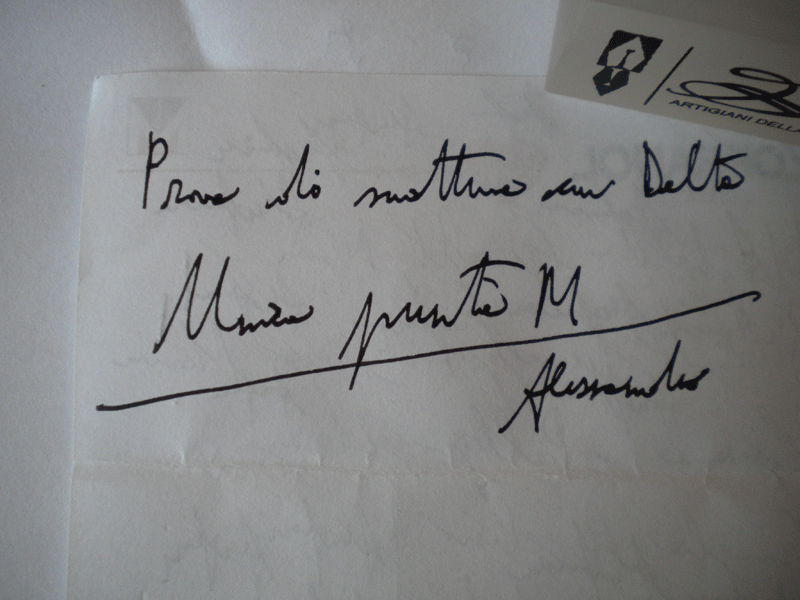 ARTIGIANI DELLA
Prova di scrittura con Delta
Musica punta M
Alessandro